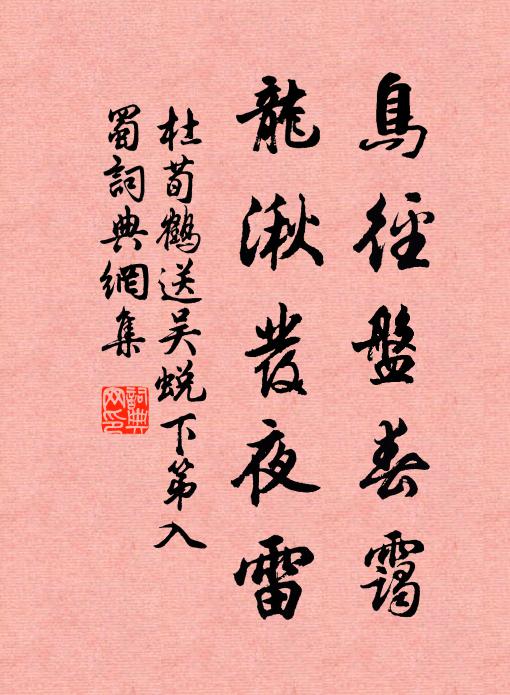 鳥徑盤春靄
龍湫發夜雷
杜荀鶴送吳蛻下第入
蜀詞典網集
詞典
网印